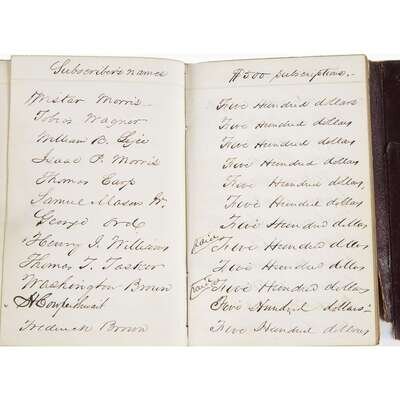 Subscriber's names
Wistar Morris
Tobias Wagner
William B.
Isaac P. Morris
Thomas Earp
Samuel Mason Jr.
George Ord
Henry J. Williams
Thomas T. Tasker
Washington Brown
H Cowperthwait
Frederick Brown
$500 subscriptions.-
Five Hundred dollars
Five Hundred dollars
Five Hundred dollars
Five Hundred dollars
Five Hundred dollars
Five Hundred dollars
Five Hundred dollars
paid Five Hundred dollars
Five Hundred dollars
paid Five Hundred dollars
Five Hundred dollars
Five Hundred dollars